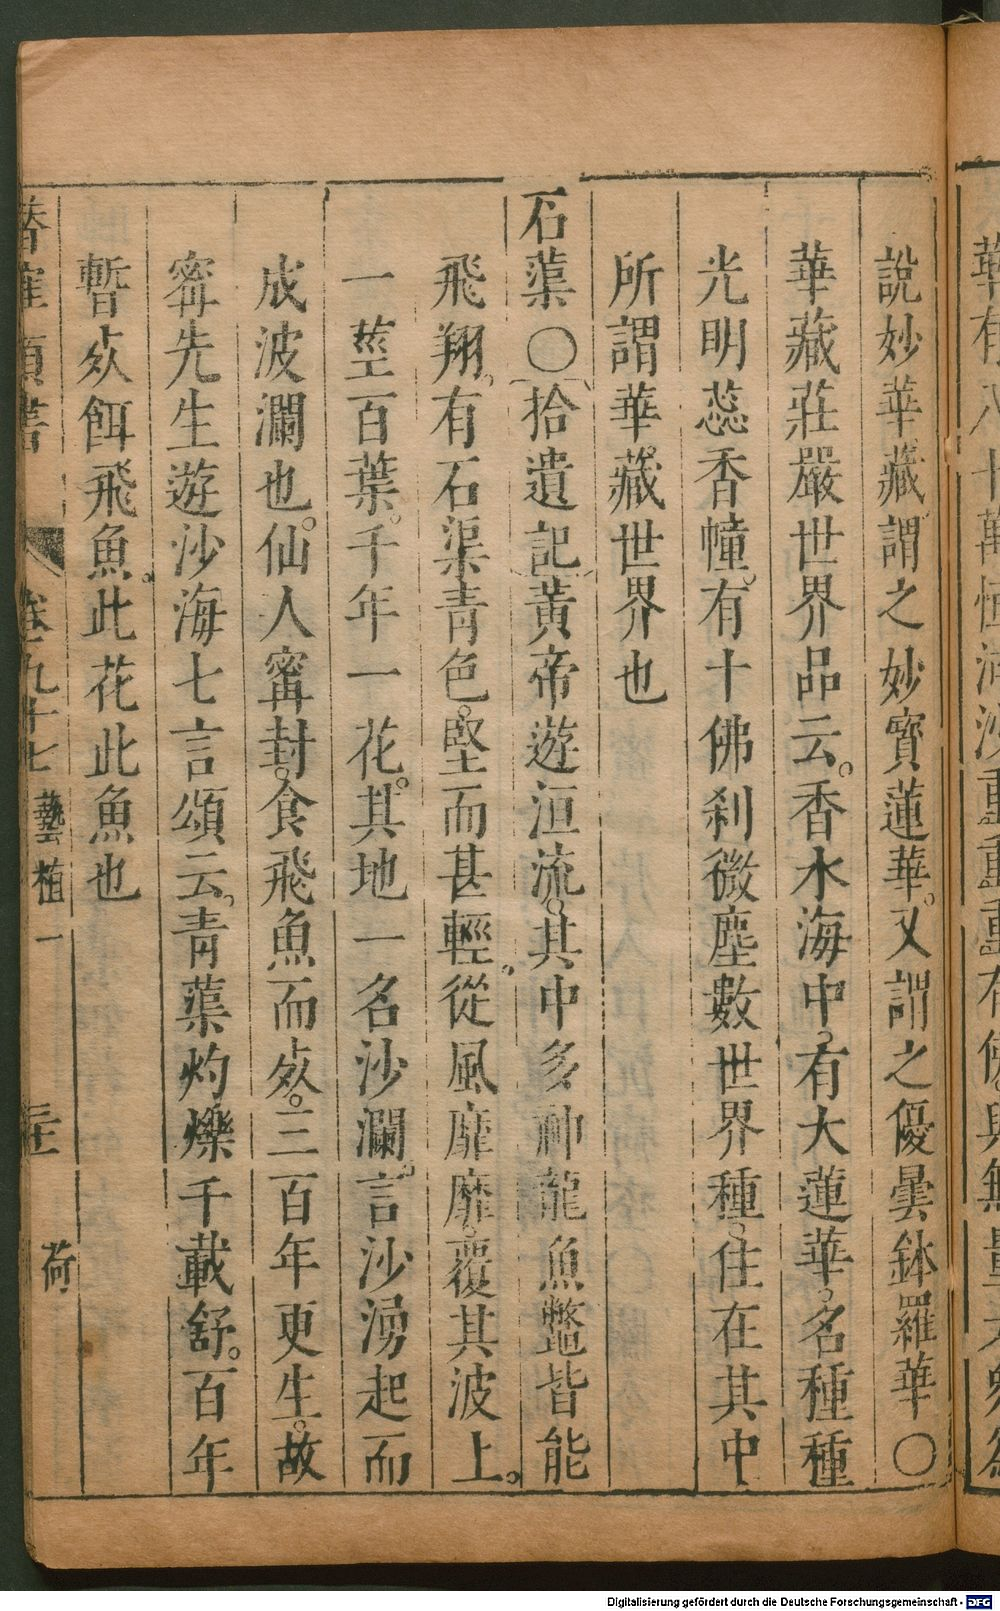 說妙華藏謂之妙寳蓮華又謂之優曇鉢羅華○
華藏莊嚴世界品云香水海中有大蓮華名種種
光明蕊香幢有十佛刹微塵數世界種住在其中
所謂華藏世界也
石蕖○拾遺記黃帝遊洹流其中多神龍魚鼈皆能
飛翔有石渠青色堅而甚輕從風靡靡覆其波上
一莖百葉千年一花其地一名沙瀾言沙湧起而
成波瀾也仙人寗封食飛魚而𣦸二百年更生故
寗先生遊沙海七言頌云青蕖灼爍千載舒百年
暫𣦸餌飛魚此花此魚也
潛確類書 卷九十七 藝植一 荷
Digitalisierung gefördert durch die Deutsche Forschungsgemeinschaft - DFG